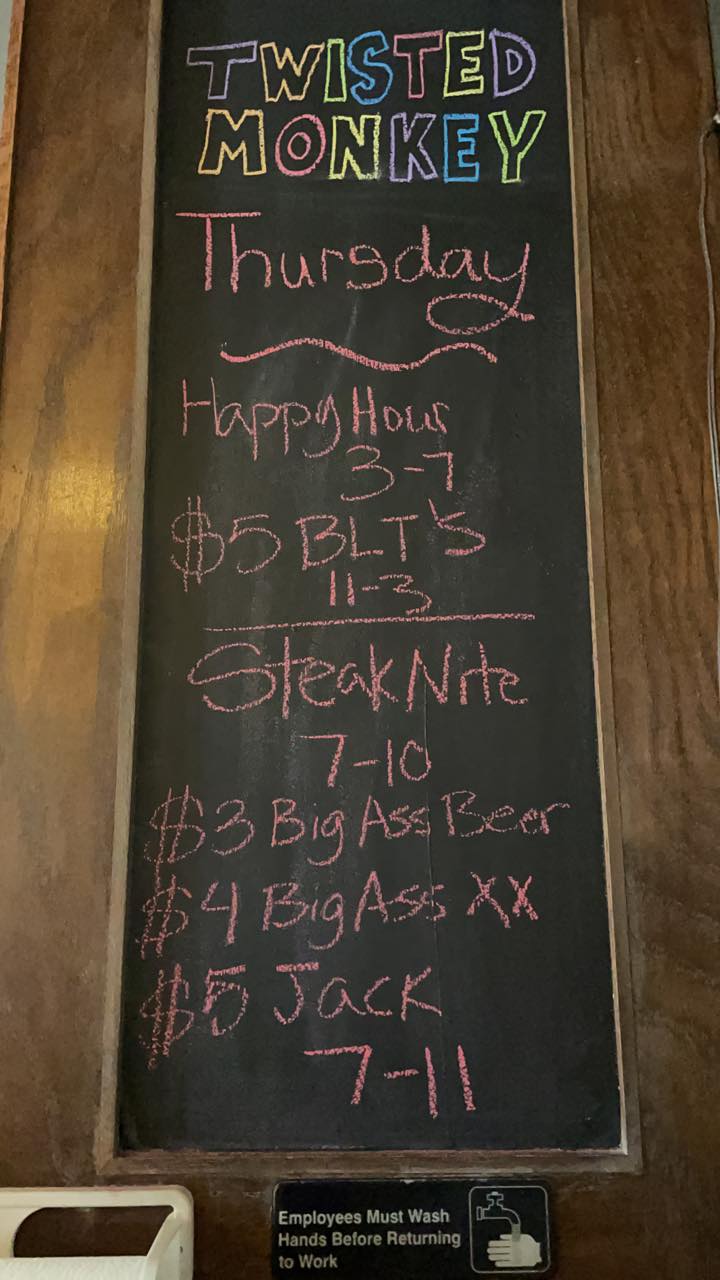 TWISTED
MONKEY
Thursday
Happy Hour
3-7
$5 BLT's
11-3
Steak Nite
7-10
$3 Big Ass Beer
$4 Big Ass XX
$5 Jack
7-11
Employees Must Wash
Hands Before Returning
to Work